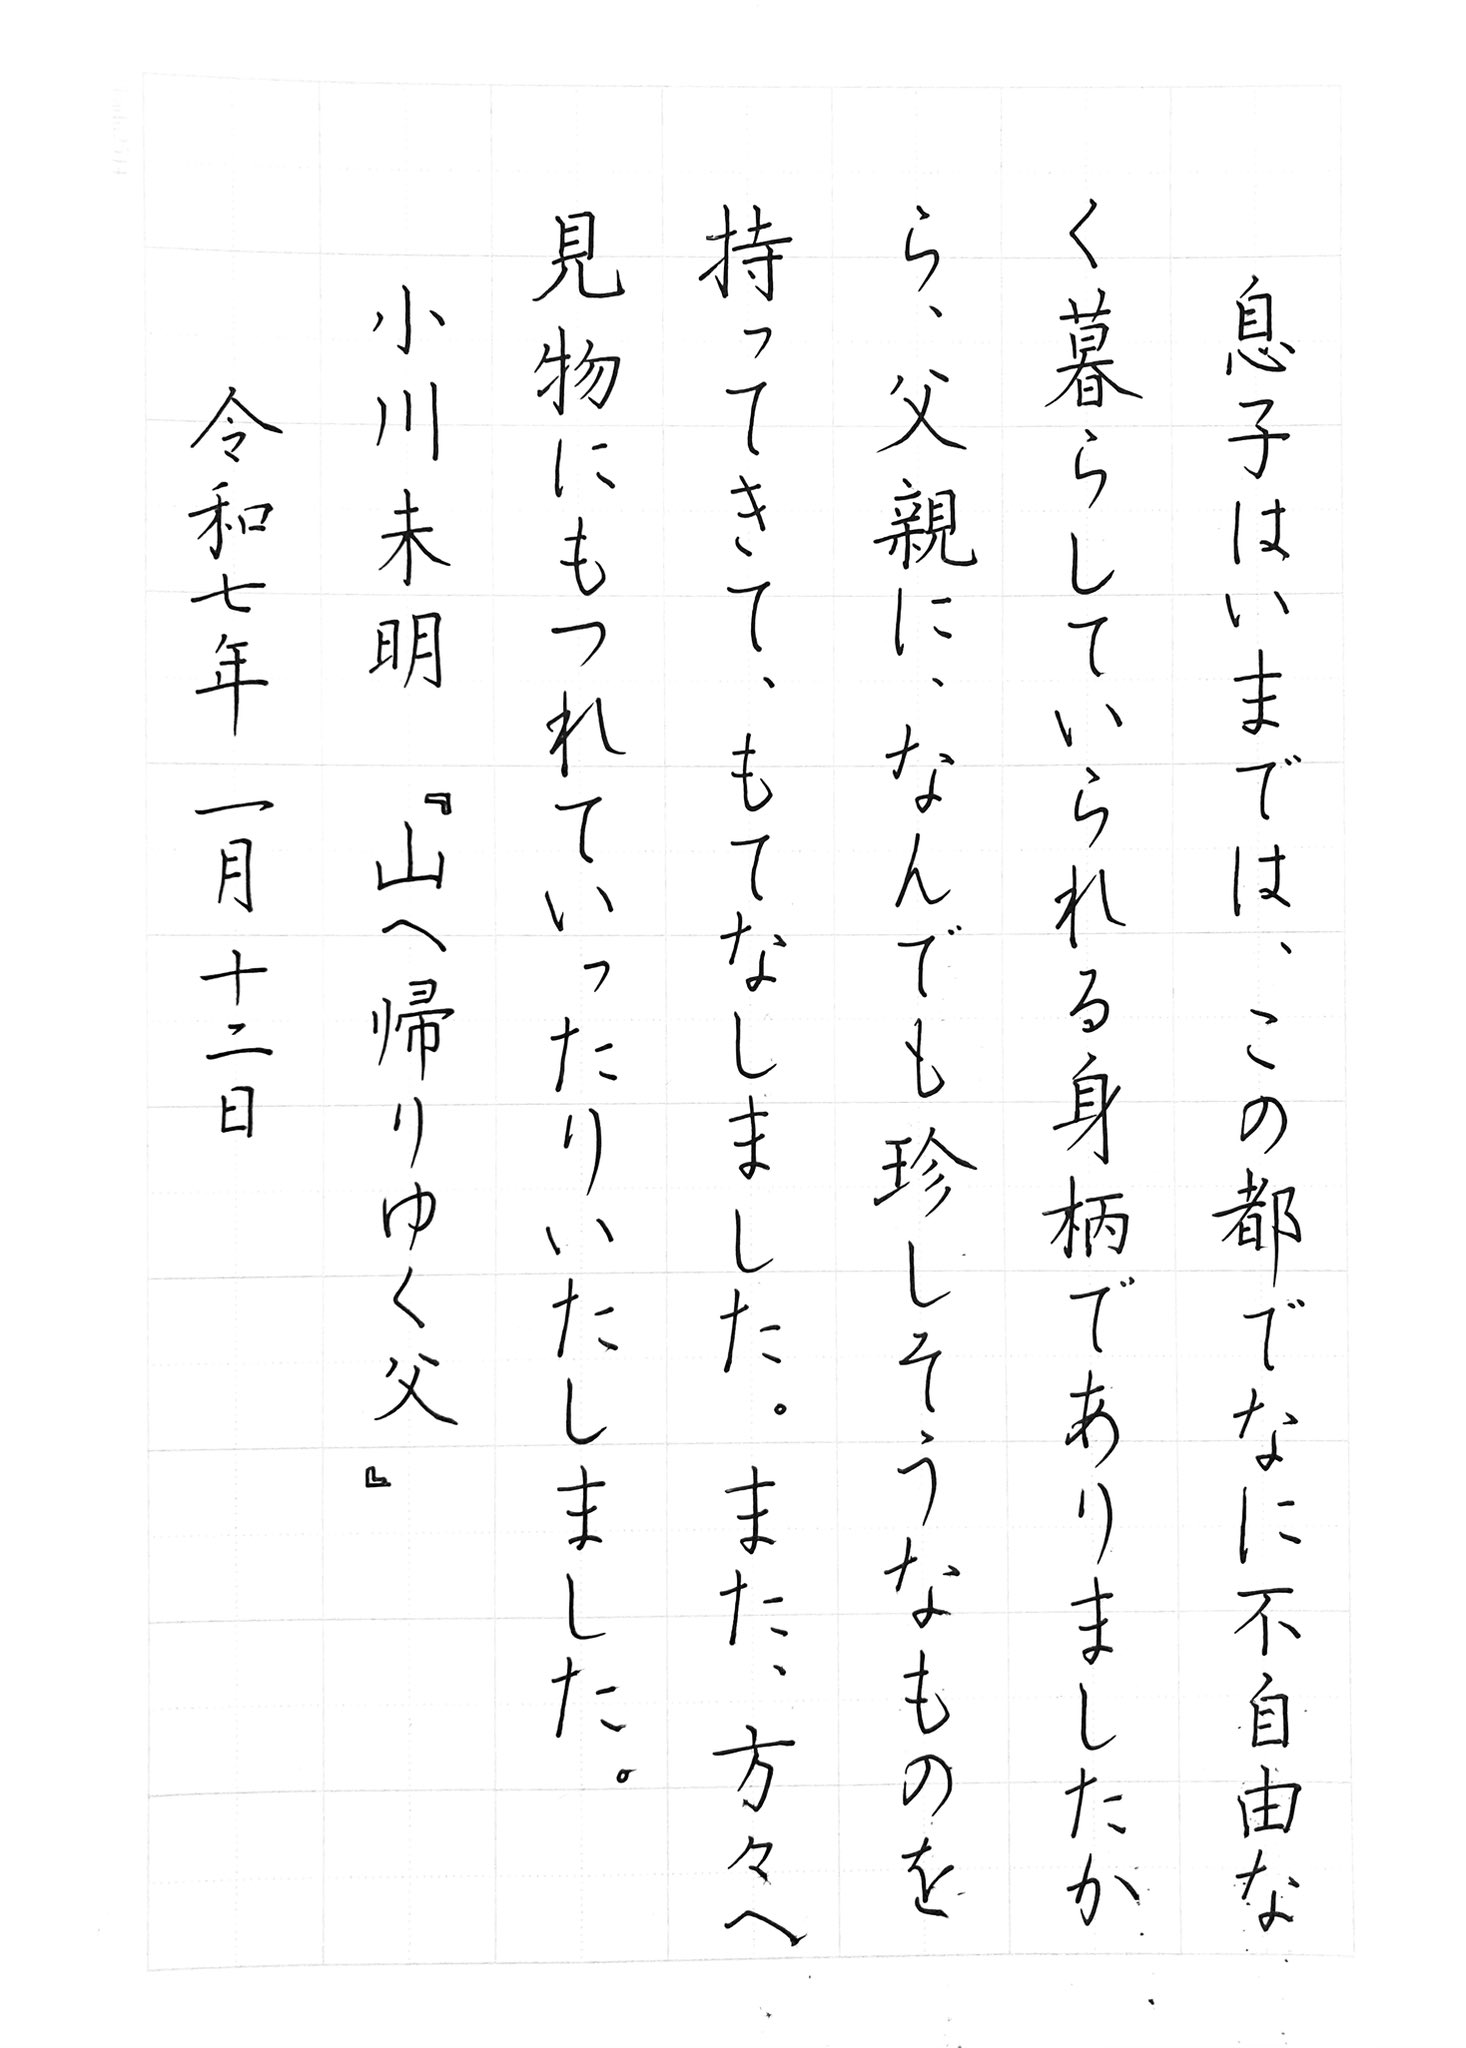 息子はいまでは、この都でなに不自由な
く暮らしていられる身柄でありましたか
ら、父親に、なんでも珍しそうなものを
持ってきて、もてなしました。また、方々へ
見物にもつれていったりいたしました。
小川未明 『山へ帰りゆく父』
令和七年 一月十二日